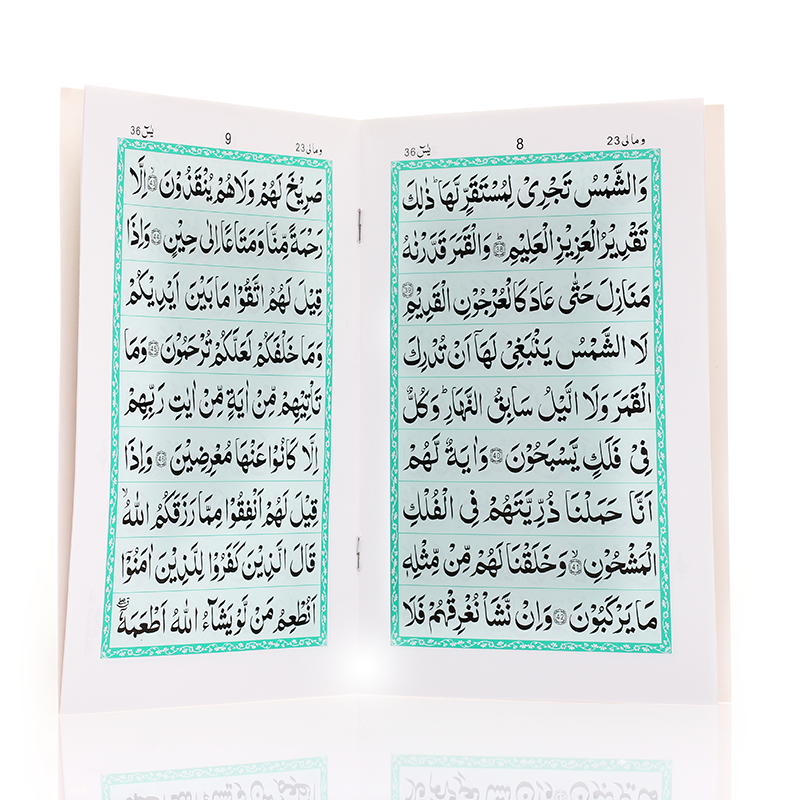 وما لی 23
8
یٰسٓ 36
وَالشَّمْسُ تَجْرِیْ لِمُسْتَقَرٍّ لَّهَا ؕ ذٰلِكَ
تَقْدِیْرُ الْعَزِیْزِ الْعَلِیْمِ ؕ 38 وَالْقَمَرَ قَدَّرْنٰهُ
مَنَازِلَ حَتّٰی عَادَ كَالْعُرْجُوْنِ الْقَدِیْمِ 39
لَا الشَّمْسُ یَنْۢبَغِیْ لَهَاۤ اَنْ تُدْرِكَ
الْقَمَرَ وَلَا الَّیْلُ سَابِقُ النَّهَارِ ؕ وَكُلٌّ
فِیْ فَلَكٍ یَّسْبَحُوْنَ 40 وَاٰیَةٌ لَّهُمْ
اَنَّا حَمَلْنَا ذُرِّیَّتَهُمْ فِی الْفُلْكِ
الْمَشْحُوْنِ ۙ 41 وَخَلَقْنَا لَهُمْ مِّنْ مِّثْلِهٖ
مَا یَرْكَبُوْنَ 42 وَاِنْ نَّشَاْ نُغْرِقْهُمْ فَلَا
وما لی 23
9
یٰسٓ 36
صَرِیْخَ لَهُمْ وَلَا هُمْ یُنْقَذُوْنَ ۙ 43 اِلَّا
رَحْمَةً مِّنَّا وَمَتَاعًا اِلٰی حِیْنٍ 44 وَاِذَا
قِیْلَ لَهُمُ اتَّقُوْا مَا بَیْنَ اَیْدِیْكُمْ
وَمَا خَلْفَكُمْ لَعَلَّكُمْ تُرْحَمُوْنَ 45 وَمَا
تَاْتِیْهِمْ مِّنْ اٰیَةٍ مِّنْ اٰیٰتِ رَبِّهِمْ
اِلَّا كَانُوْا عَنْهَا مُعْرِضِیْنَ 46 وَاِذَا
قِیْلَ لَهُمْ اَنْفِقُوْا مِمَّا رَزَقَكُمُ اللّٰهُ ۙ
قَالَ الَّذِیْنَ كَفَرُوْا لِلَّذِیْنَ اٰمَنُوْۤا
اَنُطْعِمُ مَنْ لَّوْ یَشَآءُ اللّٰهُ اَطْعَمَهٗۤ